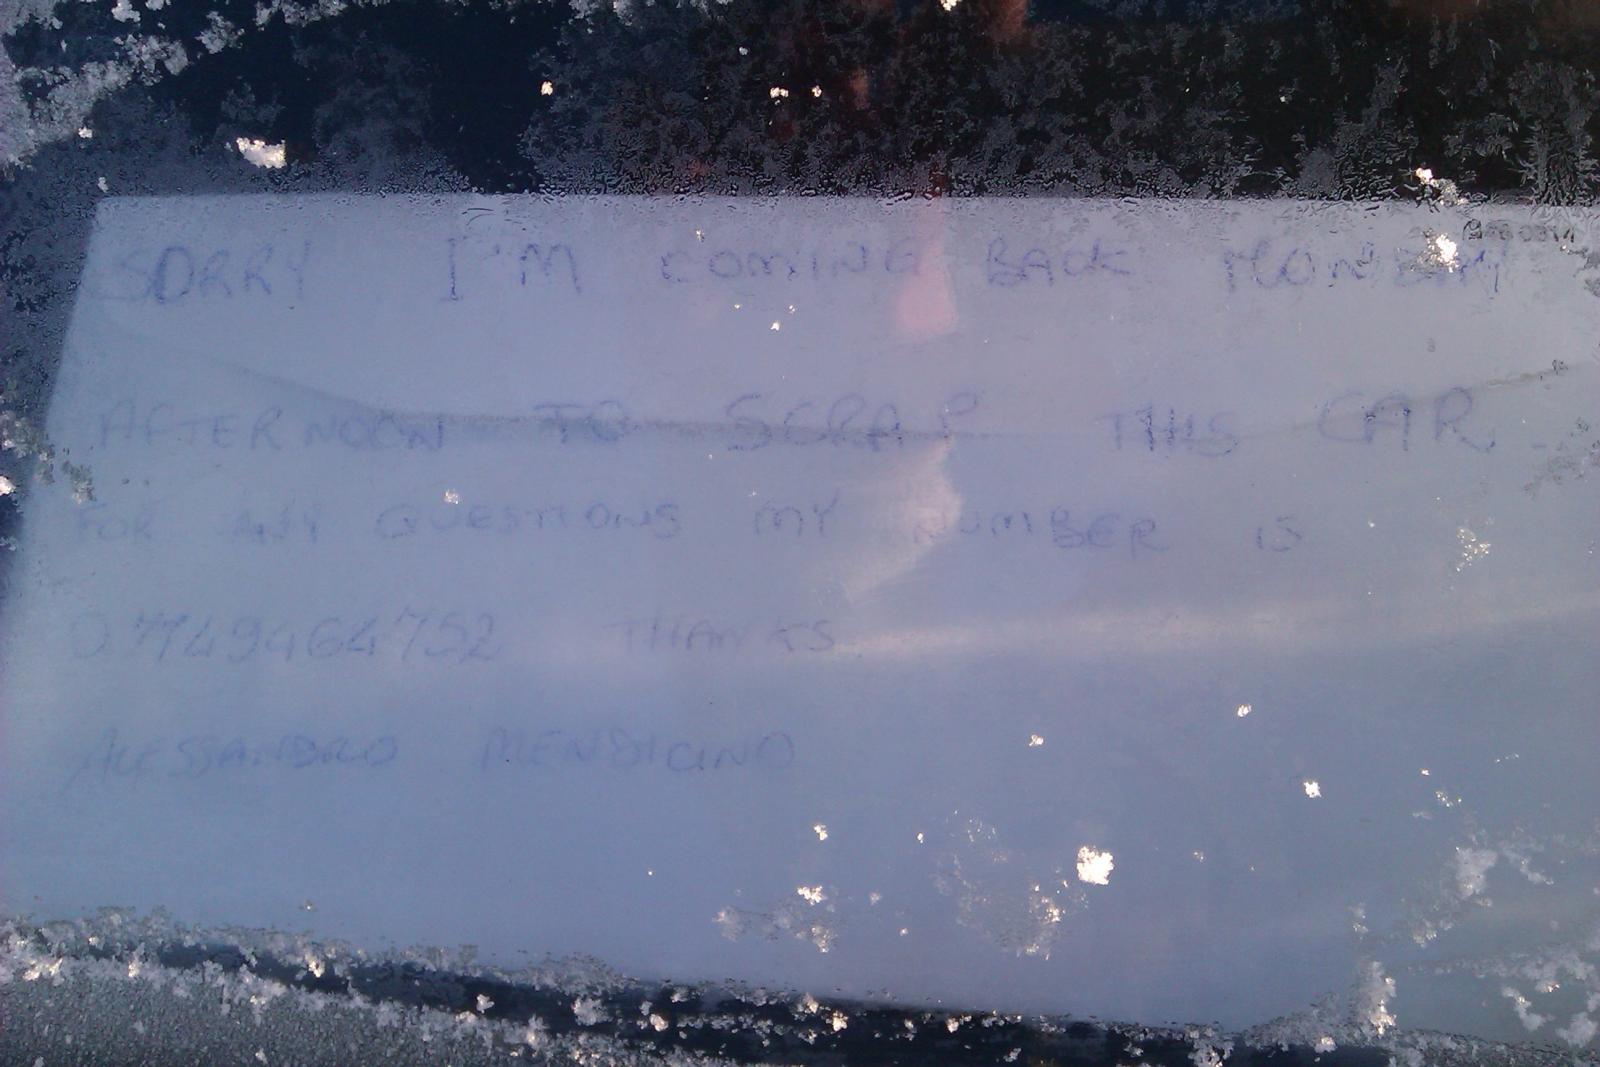 SORRY I'M COMING BACK MONDAY
AFTERNOON TO SCRAP THIS CAR.
FOR ANY QUESTIONS MY NUMBER IS
07749464752 THANKS
ALESSANDRO MENDICINO